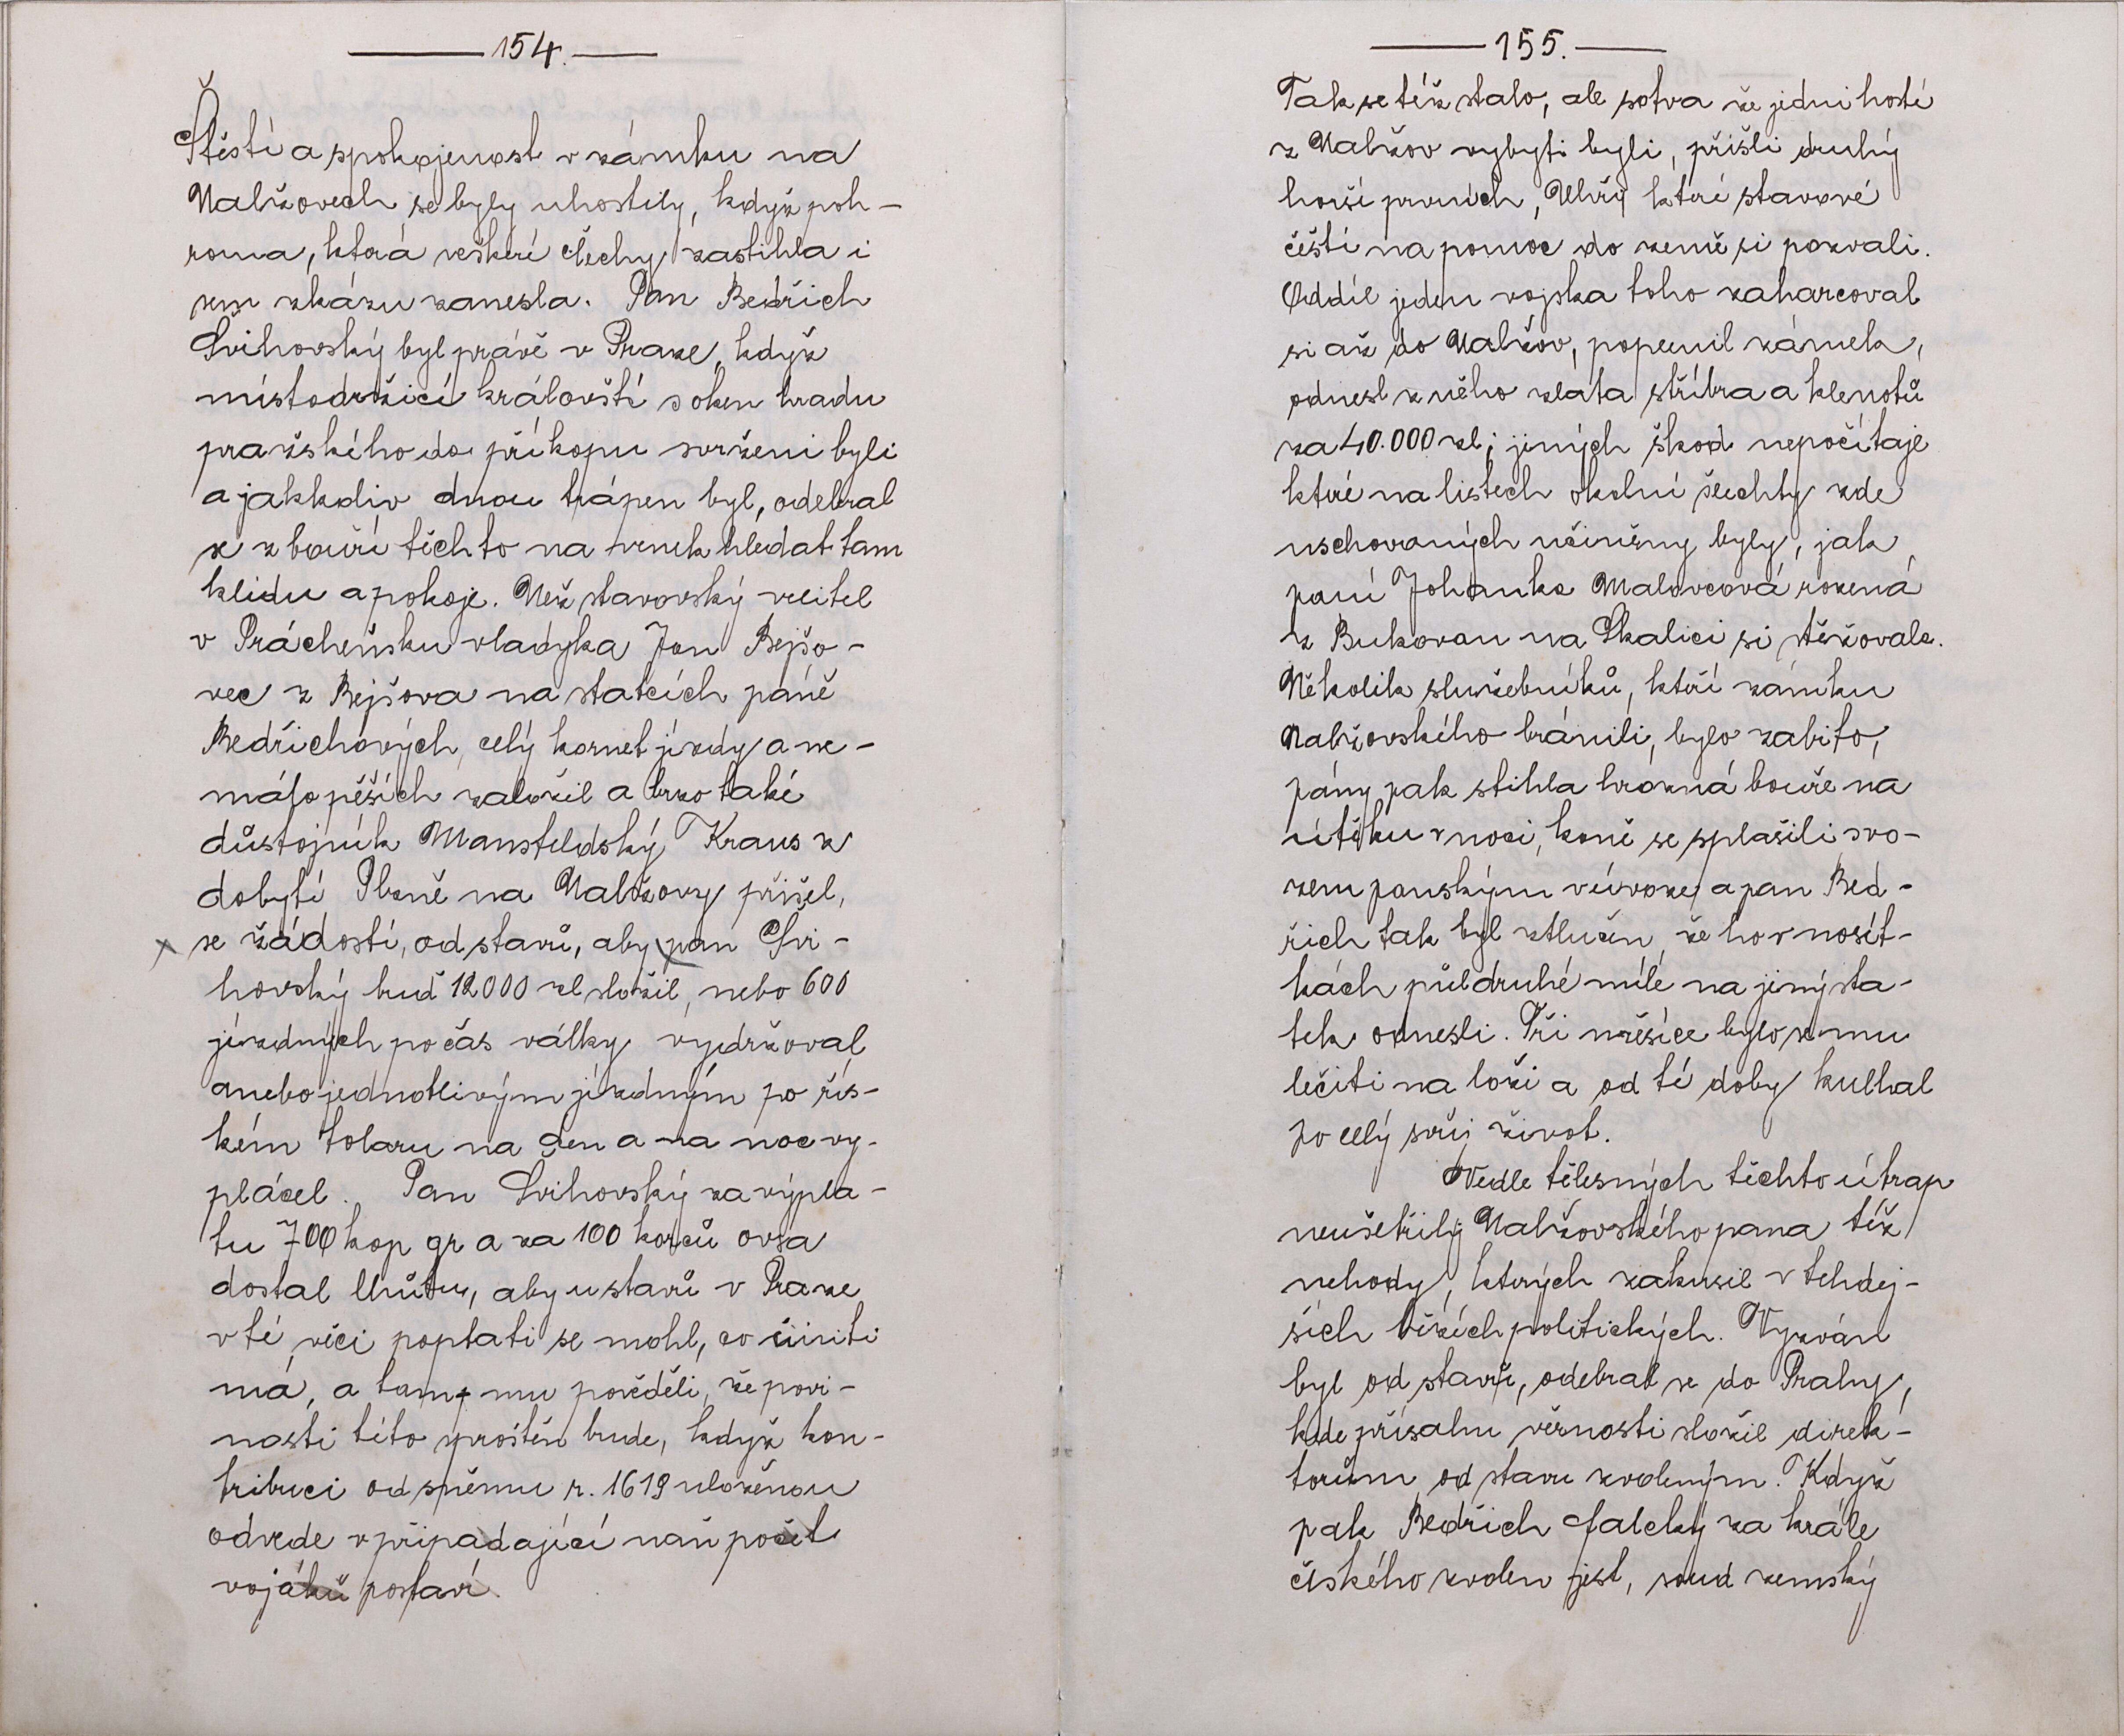 154.
Štěstí a spokojenost v zámku na
Nalžovech se byly uhostily, když poh-
roma, která veškeré Čechy zastihla i
sem zkázu zanesla. Pan Bedřich
Švihovský byl právě v Praze, když
místodržící královští s oken hradu
pražského do příkopu svrženi byli
a jakkoliv dnou trápen byl, odebral
se z bouří těchto na venek hledat tam
klidu a pokoje. Než stavovský velitel
v Prácheňsku vladyka Jan Bejšo-
vec z Bejšova na statcích páně
Bedřichových, celý kornet jízdy a ne-
málo pěších založil a brzo také
důstojník Mansfeldský Kraus z
dobytí Plzně na Nalžovy přišel,
se žádostí, od stavů, aby pan Švi-
hovský buď 12000 zl složil, nebo 600
jízdných počas války vydržoval
anebo jednotlivým jízdným po řís-
kém tolaru na den a na noc vy-
plácel. Pan Švihovský za výpla-
tu 700 kop gr a za 100 korců ovsa
dostal lhůtu, aby u stavů v Praze
v té věci poptati se mohl, co činiti
má, a tam mu pověděli, že povi-
nosti této sproštěn bude, když kon-
tribuci od sněmu r. 1619 uloženou
odvede v připadající naň počet
vojáků postaví.
155.
Tak se též stalo, ale sotva že jedni hosté
z Nalžov vybyti byli, přišli druhý
horší prvních, Uhři které stavové
čeští na pomoc do země si pozvali.
Oddíl jeden vojska toho zaharcoval
si až do Nalžov, poplenil zámek,
odnesl z něho zlata stříbra a klenotů
za 40.000 zl; jiných škod nepočítaje
které na listech okolní šlechty zde
uschovaných učiněny byly, jak
paní Johanka Malovcová rozená
z Bukovan na Skalici si stěžovala.
Několik služebníků, kteří zámku
Nalžovského bránili, bylo zabito,
pány pak stihla hrozná bouře na
útěku v noci, koně se splašili svo-
zem panským v úvoze, a pan Bed-
řich tak byl ztlučen, že ho v nosít-
kách půldruhé míle na jiný sta-
tek odnesli. Tři měsíce bylo se mu
léčiti na loži a od té doby kulhal
po celý svůj život.
Vedle tělesných těchto útrap
neušetřily Nalžovského pana též
nehody, kterých zakusil v tehdej-
ších věcích politických. Vyzván
byl od stavů, odebral se do Prahy,
kde přísahu věrnosti složil direk-
torům od stavu zvoleným. Když
pak Bedřich falcký za krále
českého zvolen jest, soud zemský